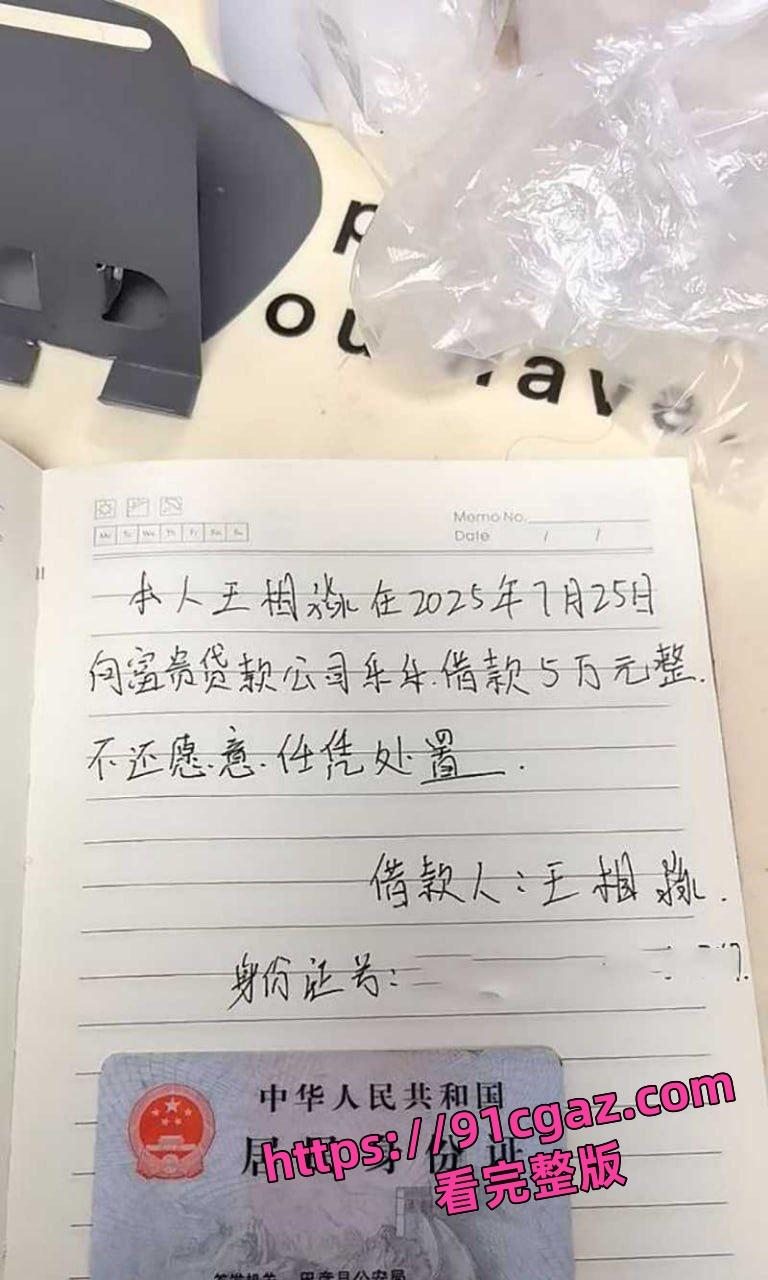 ou have.
Memo No.
Mo Tu We Th Fr Sa Su
Date / /
本人王相淼在2025年7月25日
向富贵贷款公司乐乐.借款5万元整.
不还愿意.任凭处置.
借款人:王相淼.
身份证号:
中华人民共和国
居民身份证
https://91cgaz.com
看完整版
签发机关
县公安局